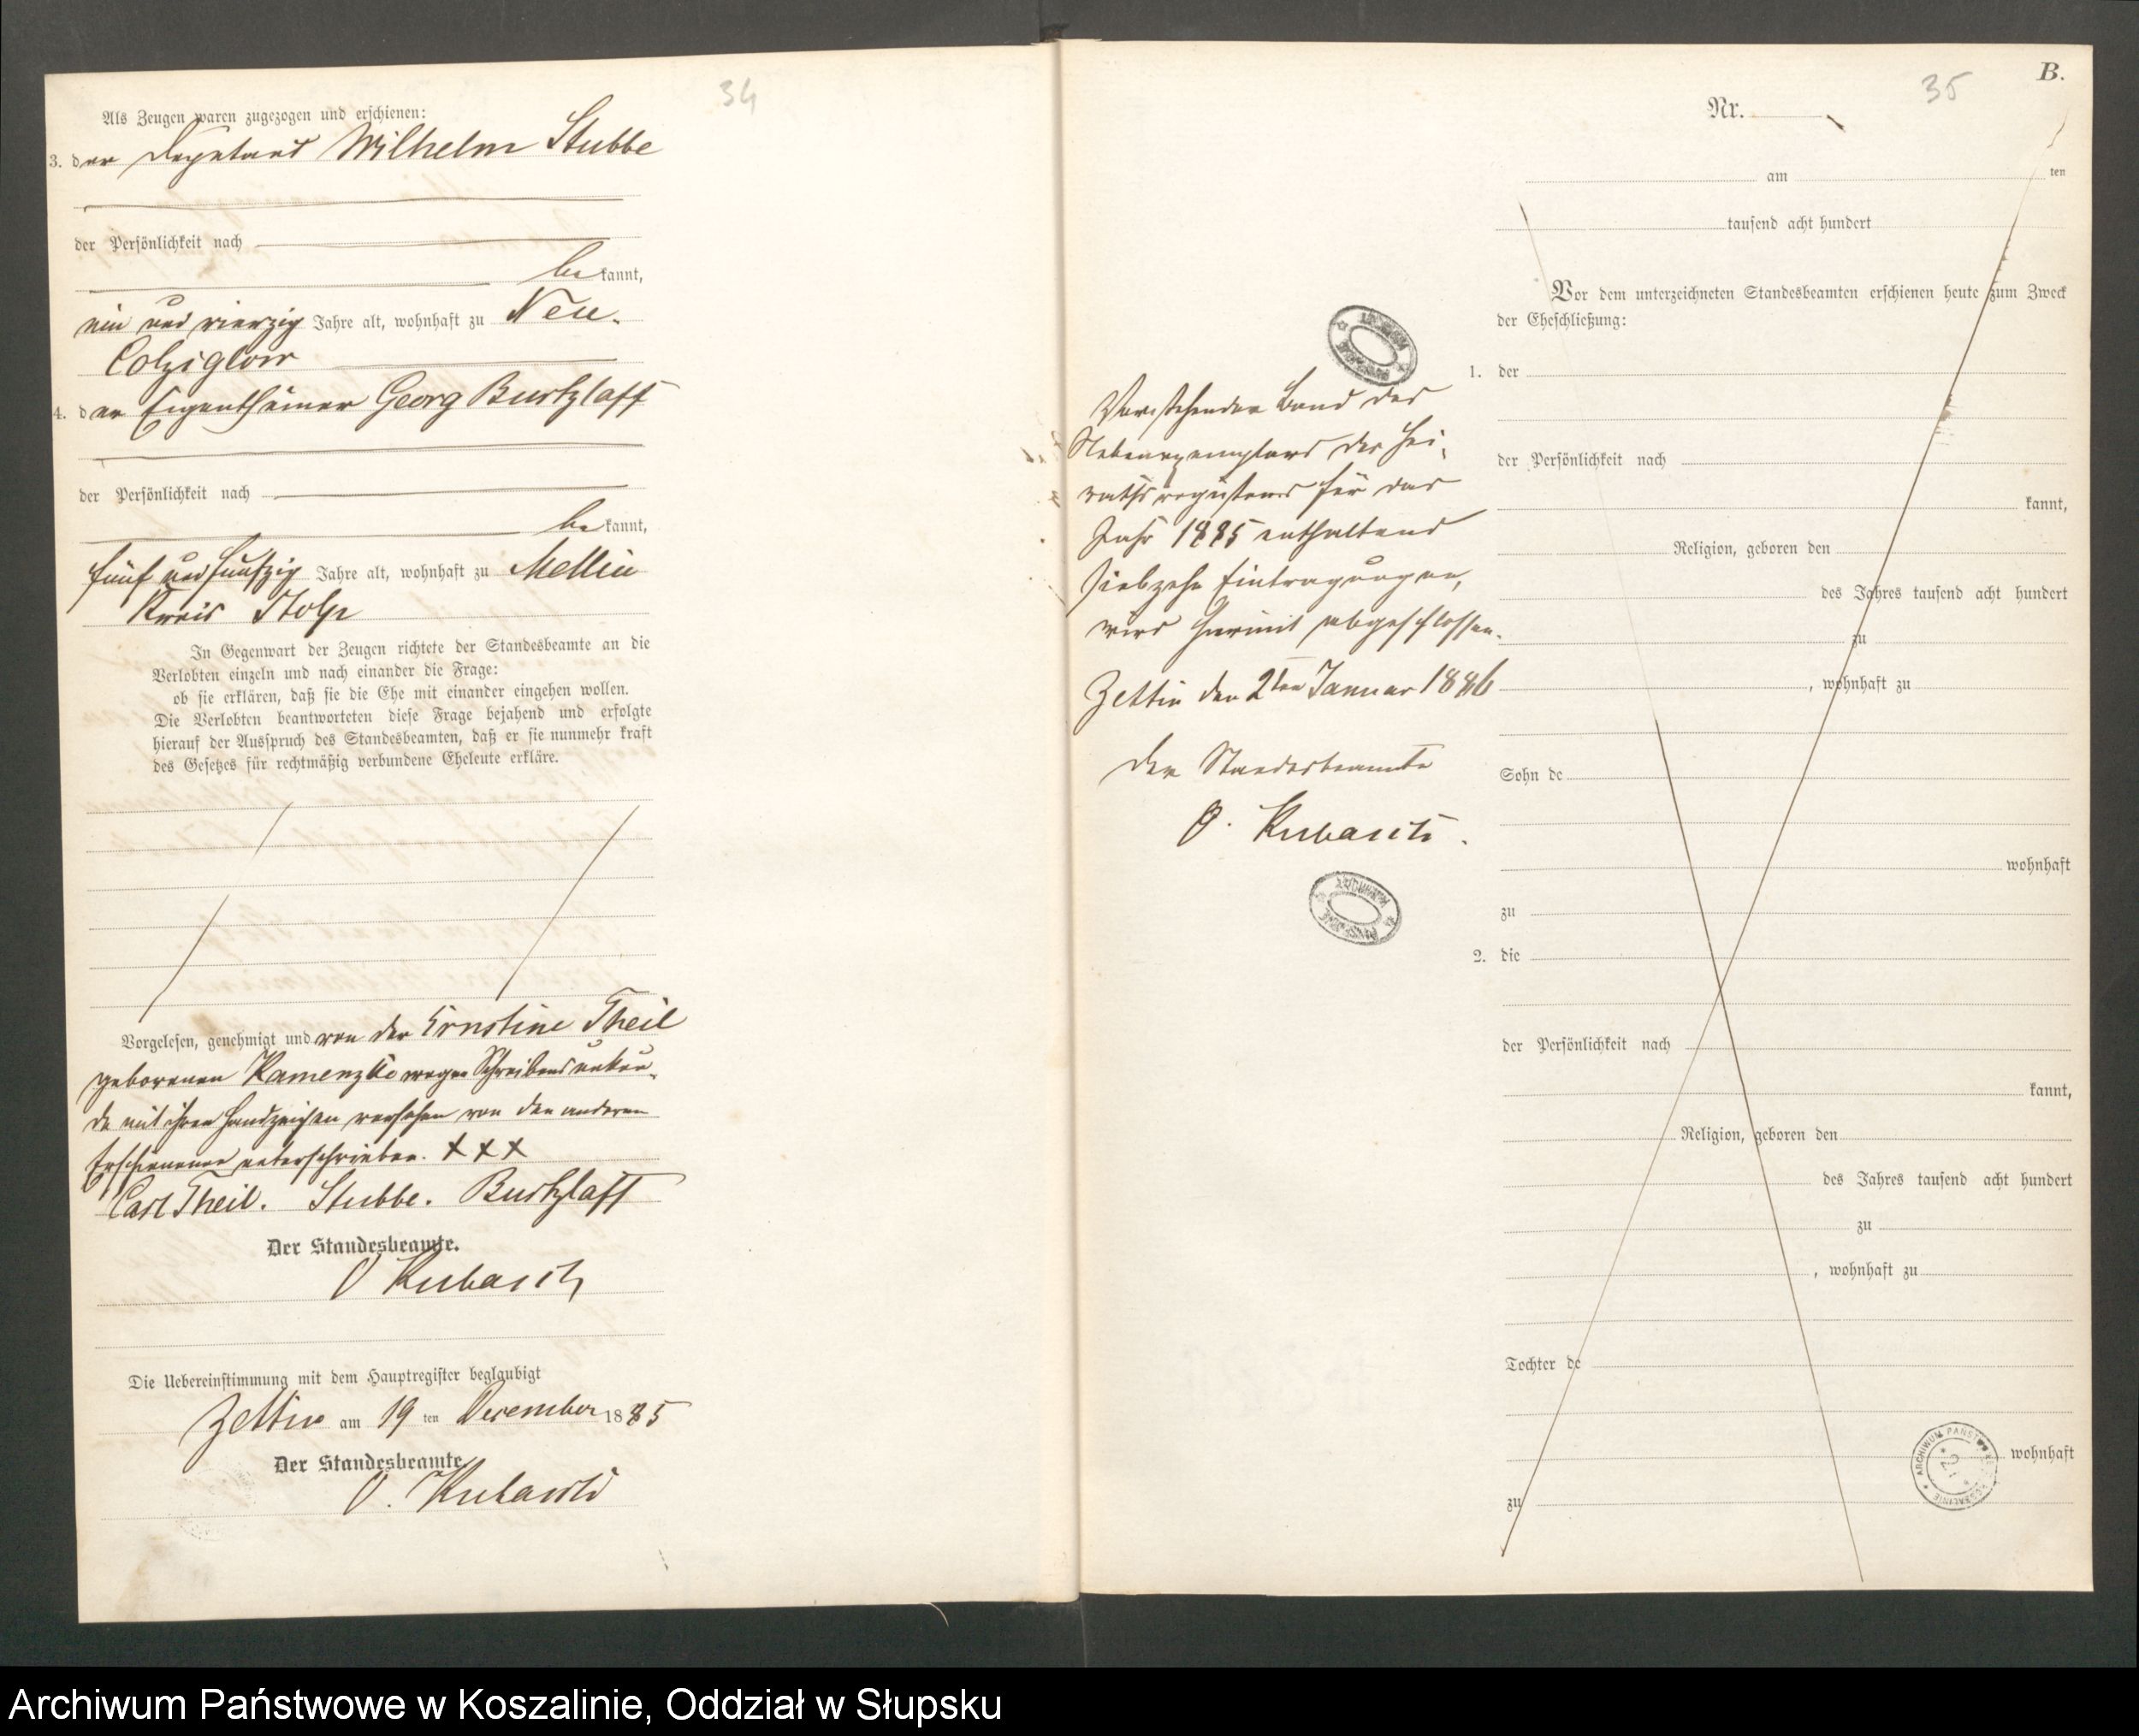 34
Als Zeugen waren zugezogen und erschienen:
3. der Deputant Wilhelm Stubbe
der Persönlichkeit nach
be kannt,
ein und vierzig Jahre alt, wohnhaft zu Neu-
Colziglow
4. der Eigenthümer Georg Burtzlaff
der Persönlichkeit nach
be kannt,
fünf und funfzig Jahre alt, wohnhaft zu Mellin
Kreis Stolp
In Gegenwart der Zeugen richtete der Standesbeamte an die
Verlobten einzeln und nach einander die Frage:
ob sie erklären, daß sie die Ehe mit einander eingehen wollen.
Die Verlobten beantworteten diese Frage bejahend und erfolgte
hierauf der Ausspruch des Standesbeamten, daß er sie nunmehr kraft
des Gesetzes für rechtmäßig verbundene Eheleute erkläre.
Vorgelesen, genehmigt und von der Ernstine Theil
geborenen Kamenzke wegen Schreibensunkun-
de mit ihren Handzeichen versehen von den anderen
Erschienenen unterschrieben. + + +
Carl Theil. Stubbe. Burtzlaff
Der Standesbeamte.
O Kubasch
Die Uebereinstimmung mit dem Hauptregister beglaubigt
Zettin am 19 ten December 1885
Der Standesbeamte
O. Kubasch
Vorstehender Band des
Nebenexemplars des Hei-
rathsregisters für das
Jahr 1885 enthaltend
siebzehn Eintragungen,
wird hiermit abgeschlossen.
Zettin den 2ten Januar 1886
Der Standesbeamte
O. Kubasch.
35
B.
Nr.
am ten
tausend acht hundert
Vor dem unterzeichneten Standesbeamten erschienen heute zum Zweck
der Eheschließung:
1. der
der Persönlichkeit nach
kannt,
Religion, geboren den
des Jahres tausend acht hundert
zu
, wohnhaft zu
Sohn de
wohnhaft
zu
2. die
der Persönlichkeit nach
kannt,
Religion, geboren den
des Jahres tausend acht hundert
zu
, wohnhaft zu
Tochter de
wohnhaft
zu
ARCHIWUM PAŃSTWOWE KOSZALINIE
2
Archiwum Państwowe w Koszalinie, Oddział w Słupsku